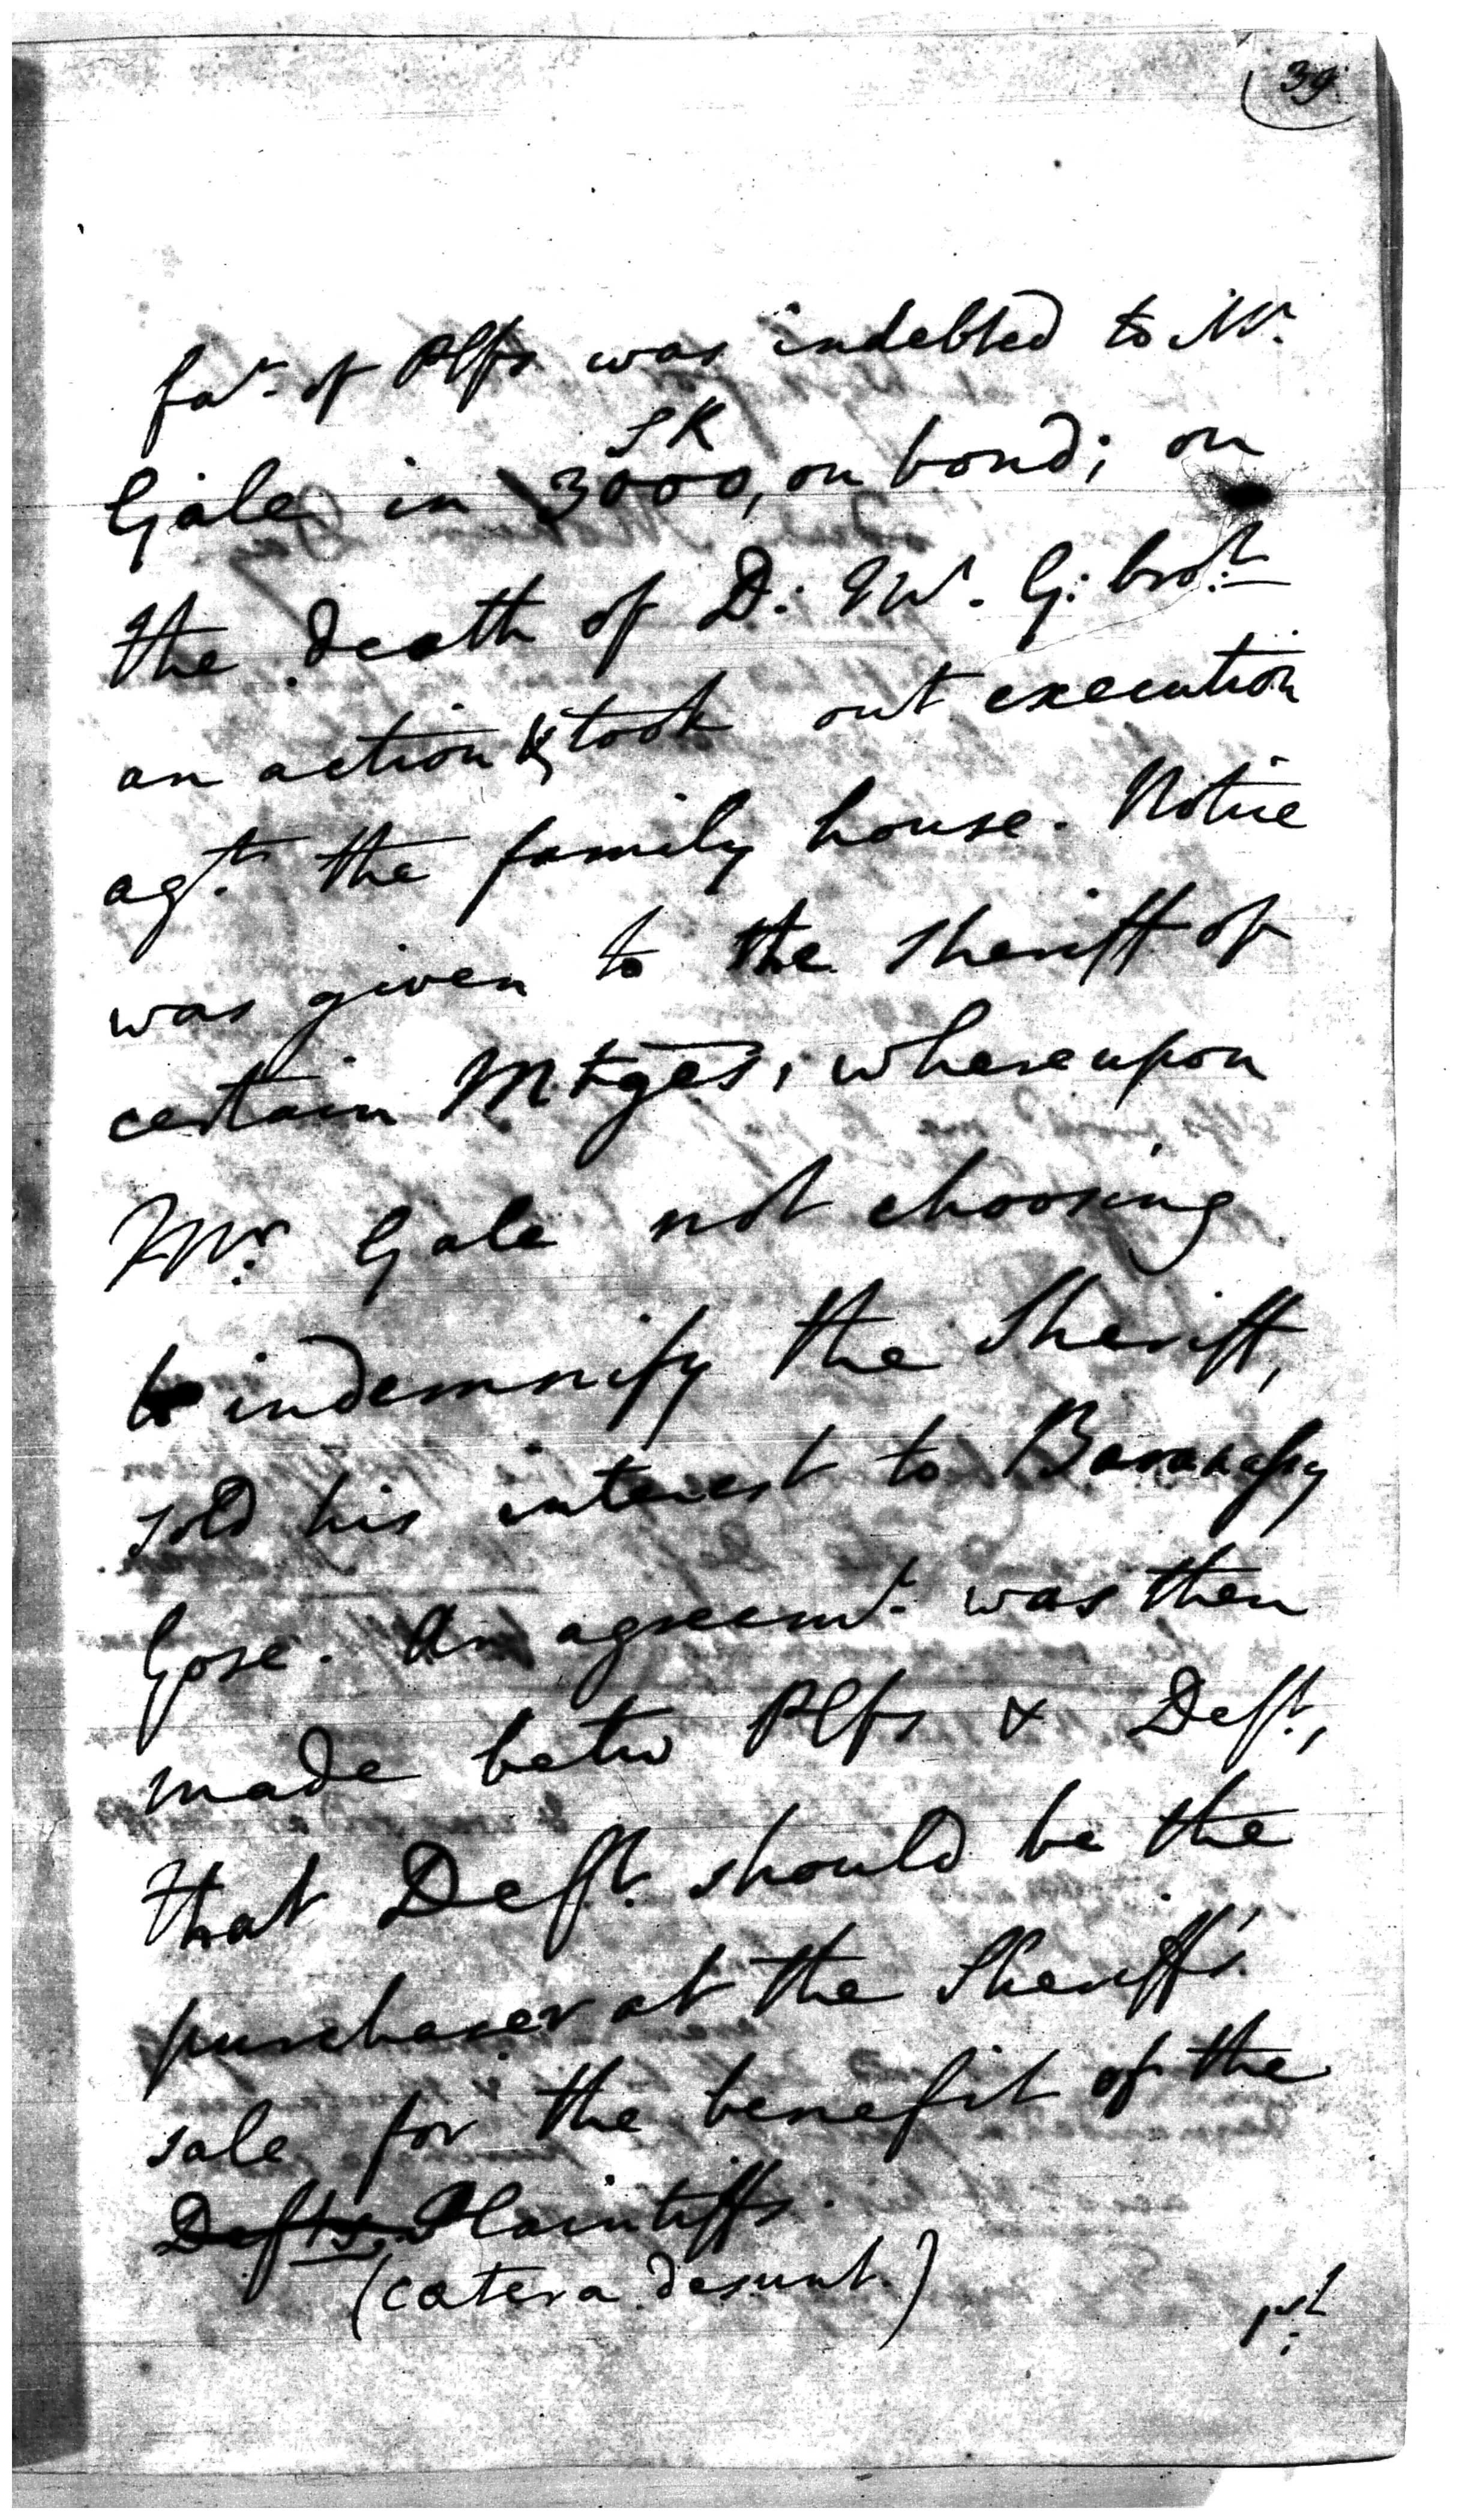 39
far. of Plfs was indebted to Mr.
SR
Gale in 3000, on bond; on
the death of D: Mr. G: brot.
an action & took out execution
agt. the family house. Notice
was given to the Sheriff of
certain Mtges, whereupon
Mr. Gale not choosing
to indemnify the Sheriff,
sold his interest to
Gose. An agreemt. was then
made betw Plfs & Deft,
that Deft. should be the
purchaser at the Sheriff's
sale for the benefit of the
Defts. Plaintiffs.
(cætera desunt.)